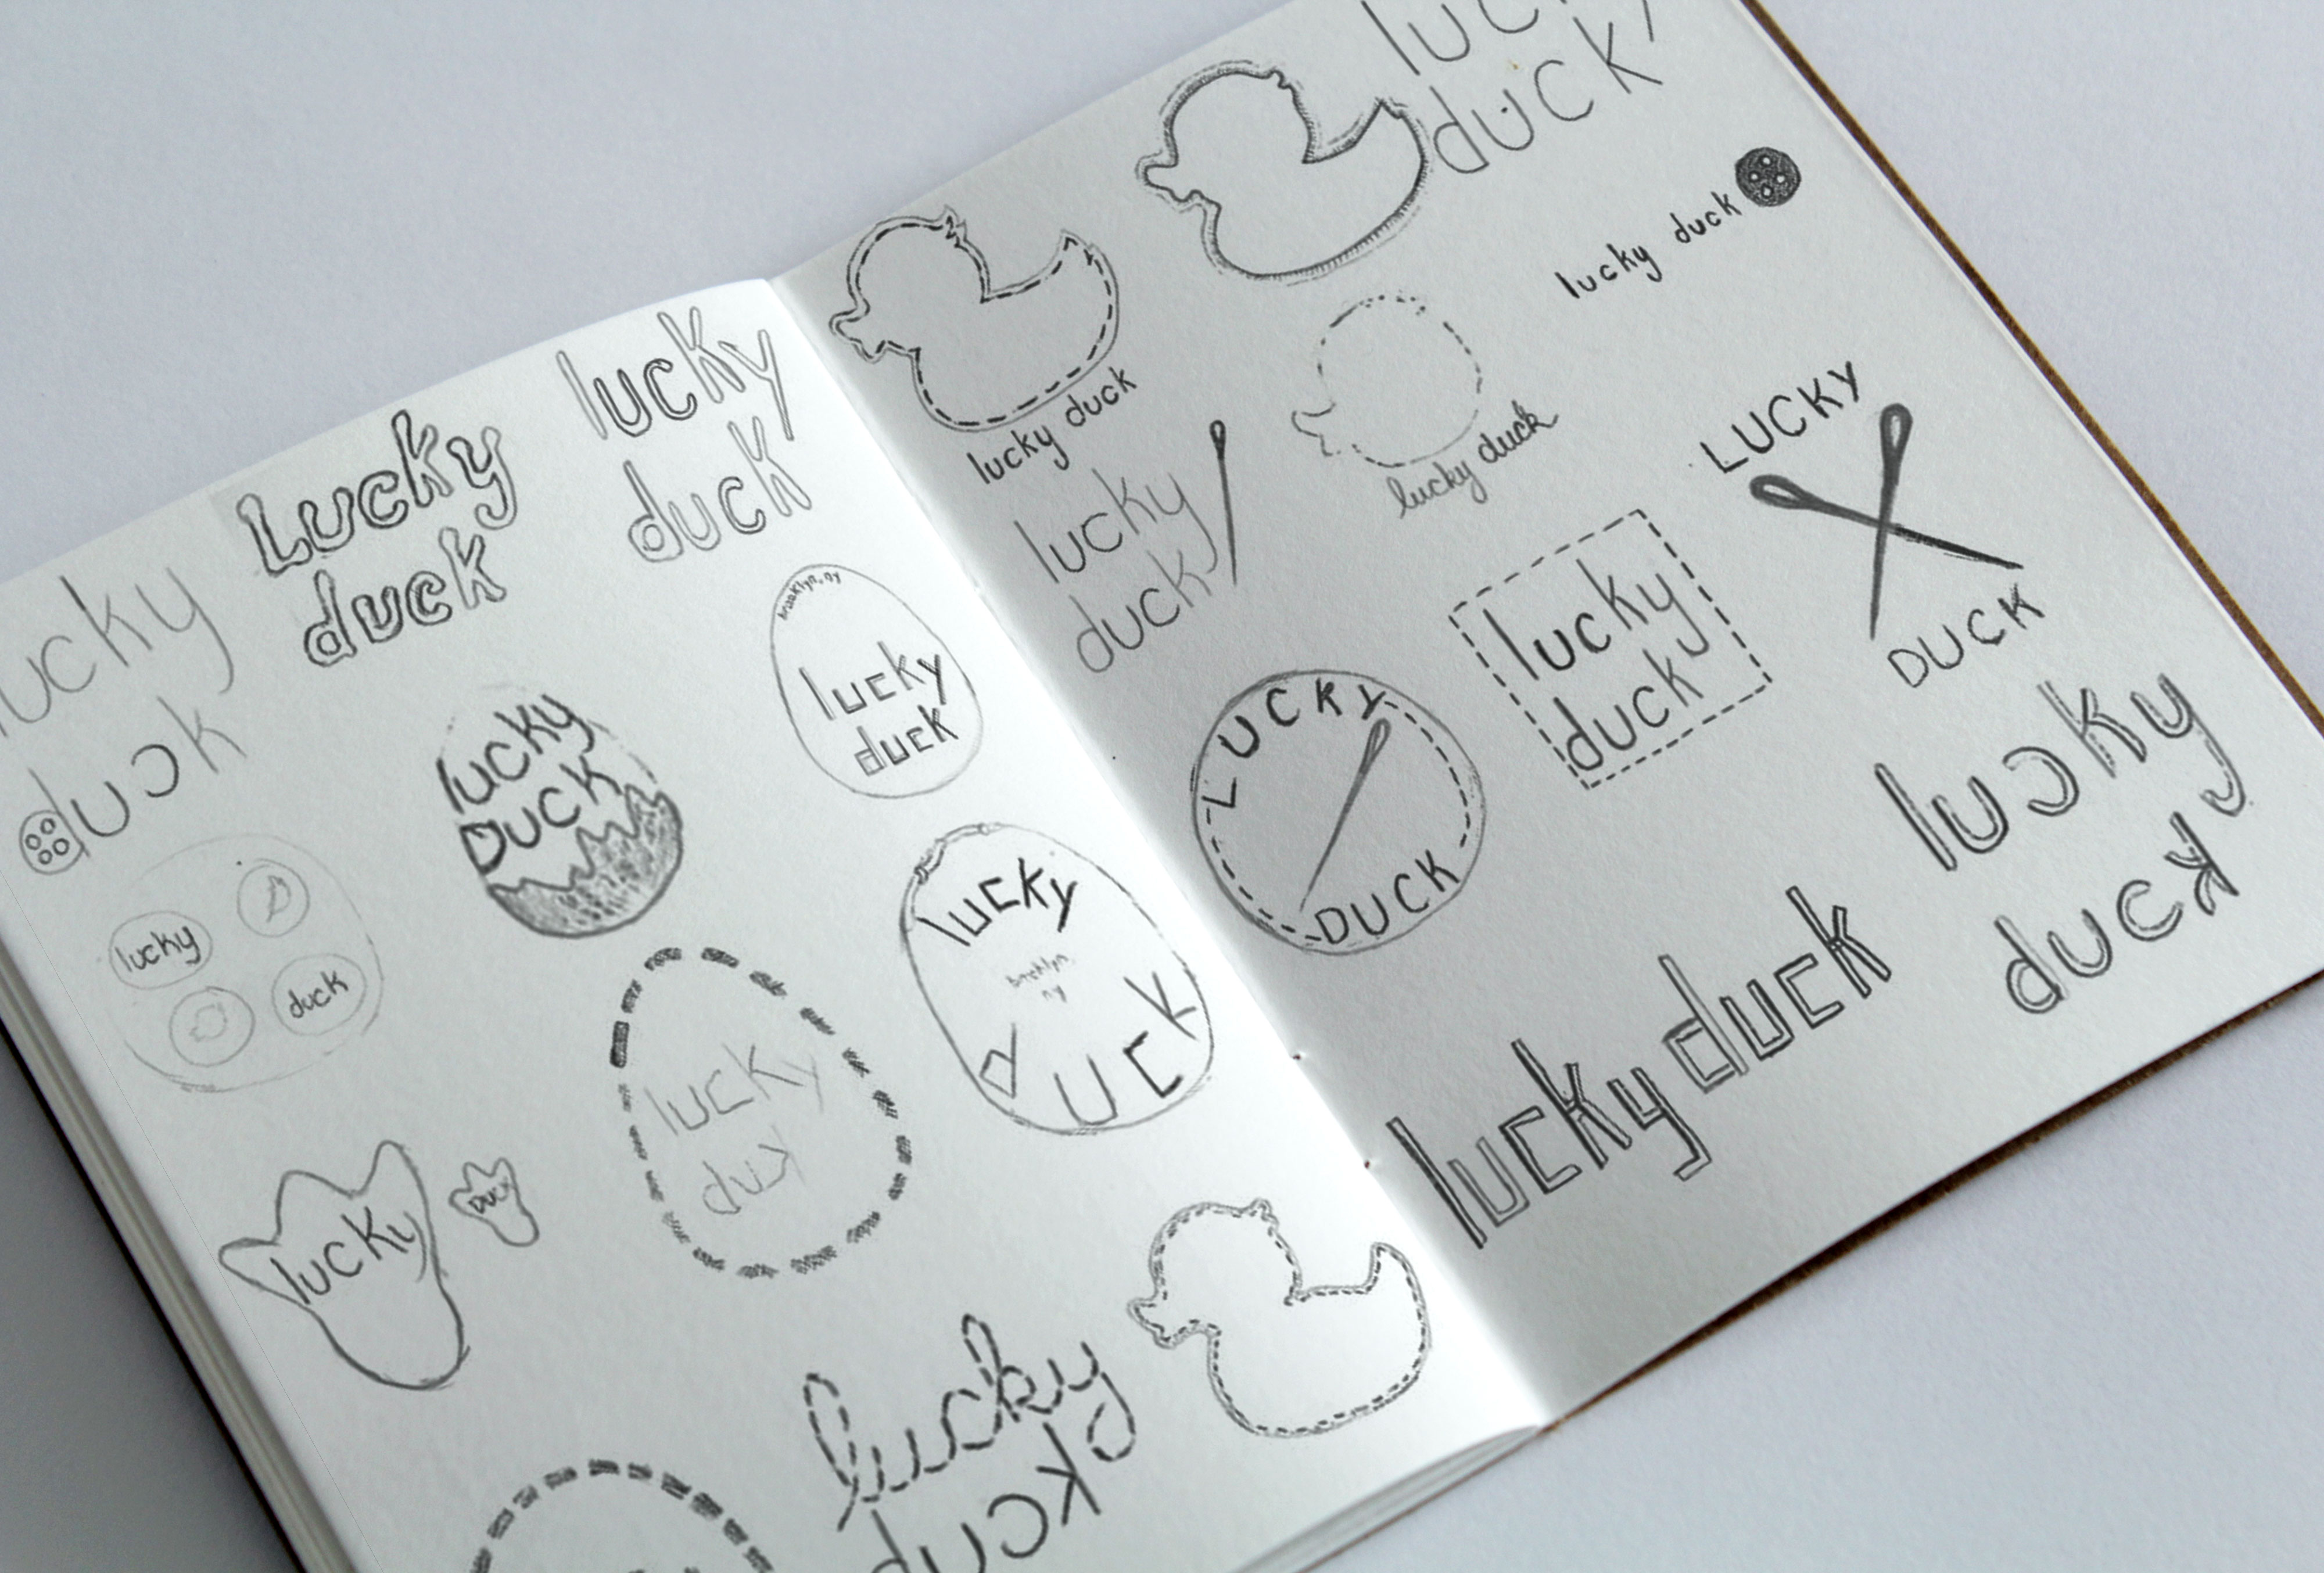 Lucky
duck
lucky
duck
ucky
duck
brooklyn, ny
lucky
duck
lucky
DUCK
lucky
duck
lucky
brooklyn,
ny
duck
lucky
duck
lucky
DUCK
lucky
duck
lucky
duck
lucky duck
lucky duck
lucky
duck
lucky duck
LUCKY
DUCK
lucky
duck
LUCKY
DUCK
lucky
duck
lucky duck